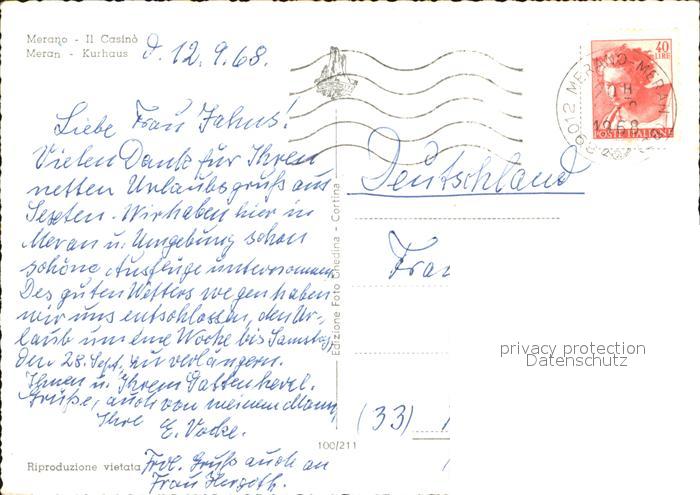 Merano - Il Casinò
Meran - Kurhaus
d. 12.9.68.
Liebe Frau Jahns!
Vielen Dank für Ihren
netten Urlaubsgruß aus
Sexten. Wir haben hier in
Meran u. Umgebung schon
schöne Ausflüge unternommen.
Des guten Wetters wegen haben
wir uns entschlossen, den Ur-
laub um eine Woche bis Samstag,
den 28. Sept. zu verlängern.
Ihnen u. Ihrem Gatten herzl.
Grüße, auch von meinem Mann,
Ihre
E. Vocke.
Frdl. Gruß auch an
Frau
Riproduzione vietata
Edizione Foto Ghedina - Cortina
100/211
40
LIRE
POSTE ITALIANE
39012 MERANO-MERAN
Deutschland
Frau
(33)
privacy protection
Datenschutz